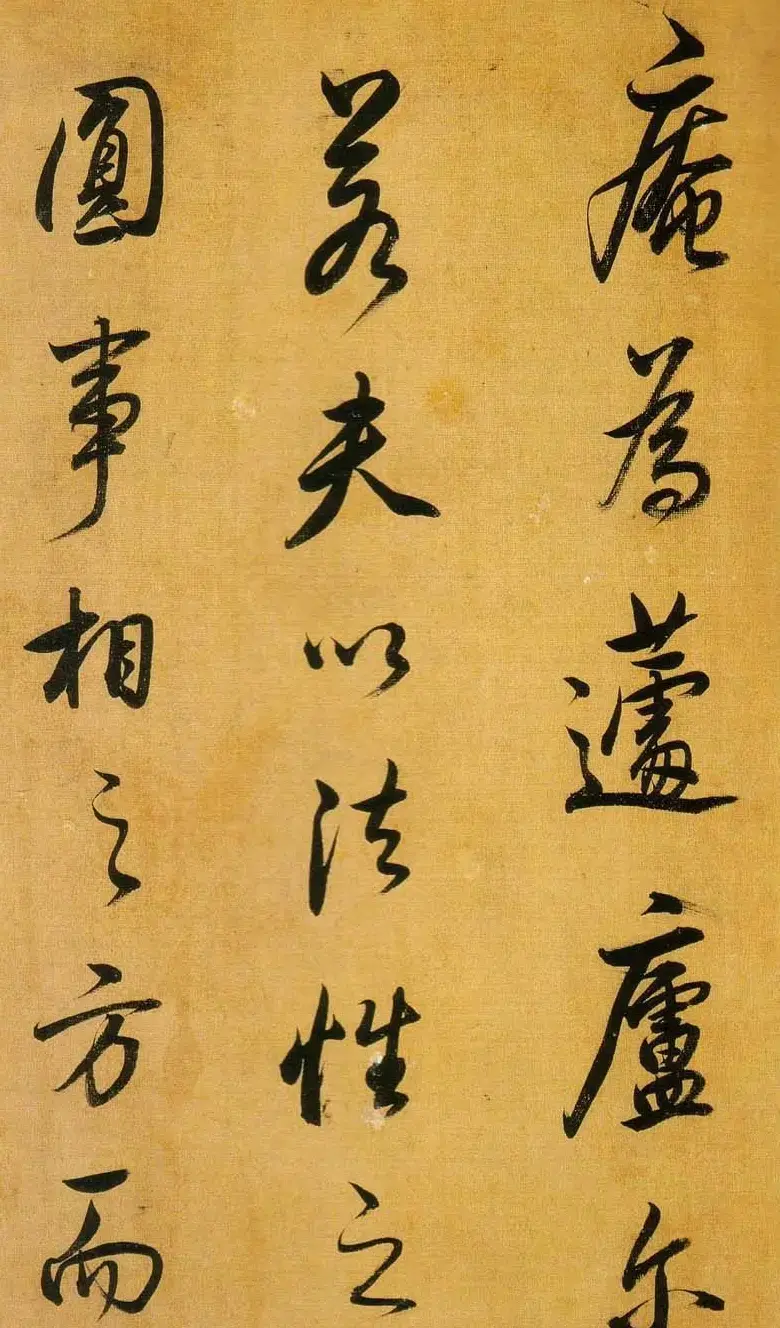 庵為蘧廬尔
若夫以法性之
圓事相之方而